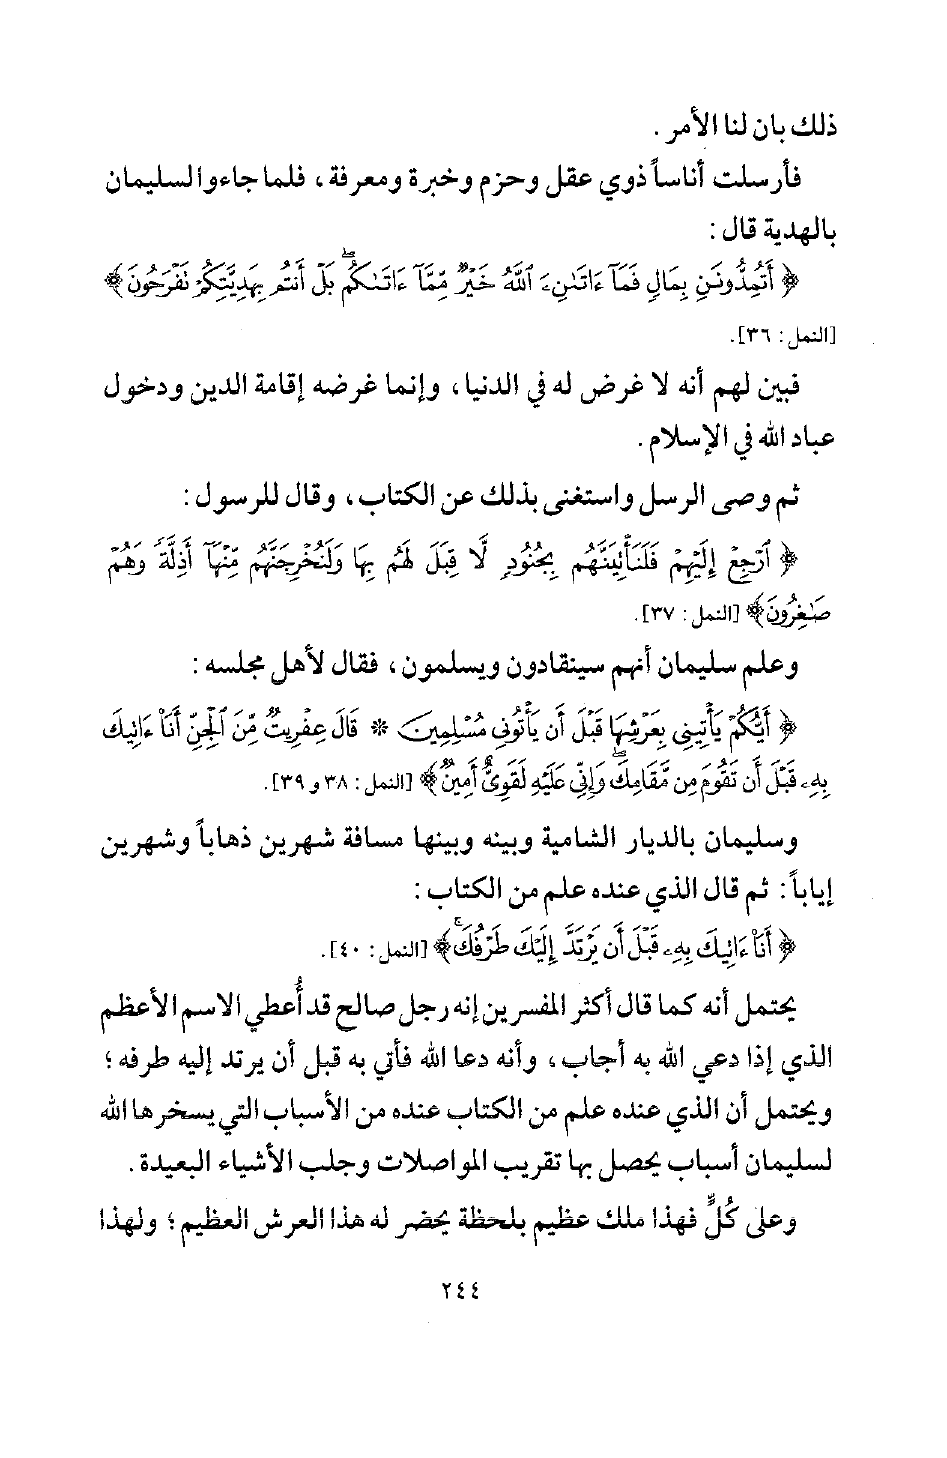 ذلك بان لنا الأمر .
فأرسلت أناساً ذوي عقل وحزم وخبرة ومعرفة ، فلما جاءوا لسليمان
بالهدية قال :
﴿ أَتُمِدُّونَنِ بِمَالٍ فَمَآ ءَاتَىٰنِۦَ ٱللَّهُ خَيْرٌ مِّمَّآ ءَاتَىٰكُمۖ بَلْ أَنتُم بِهَدِيَّتِكُمْ تَفْرَحُونَ ﴾
[النمل : ٣٦].
فبين لهم أنه لا غرض له في الدنيا ، وإنما غرضه إقامة الدين ودخول
عباد الله في الإسلام .
ثم وصى الرسل واستغنى بذلك عن الكتاب ، وقال للرسول :
﴿ ٱرْجِعْ إِلَيْهِمْ فَلَنَأْتِيَنَّهُم بِجُنُودٍ لَّا قِبَلَ لَهُم بِهَا وَلَنُخْرِجَنَّهُم مِّنْهَآ أَذِلَّةً وَهُمْ
صَٰغِرُونَ ﴾ [النمل : ٣٧].
وعلم سليمان أنهم سينقادون ويسلمون ، فقال لأهل مجلسه :
﴿ أَيُّكُمْ يَأْتِينِى بِعَرْشِهَا قَبْلَ أَن يَأْتُونِى مُسْلِمِينَ * قَالَ عِفْرِيتٌ مِّنَ ٱلْجِنِّ أَنَا۠ ءَاتِيكَ
بِهِۦ قَبْلَ أَن تَقُومَ مِن مَّقَامِكَۖ وَإِنِّى عَلَيْهِ لَقَوِىٌّ أَمِينٌ ﴾ [النمل : ٣٨ و ٣٩].
وسليمان بالديار الشامية وبينه وبينها مسافة شهرين ذهاباً وشهرين
إياباً : ثم قال الذي عنده علم من الكتاب :
﴿ أَنَا۠ ءَاتِيكَ بِهِۦ قَبْلَ أَن يَرْتَدَّ إِلَيْكَ طَرْفُكَۚ ﴾ [النمل : ٤٠].
يحتمل أنه كما قال أكثر المفسرين إنه رجل صالح قد أُعطي الاسم الأعظم
الذي إذا دعي الله به أجاب ، وأنه دعا الله فأتي به قبل أن يرتد إليه طرفه ؛
ويحتمل أن الذي عنده علم من الكتاب عنده من الأسباب التي يسخرها الله
لسليمان أسباب يحصل بها تقريب المواصلات وجلب الأشياء البعيدة .
وعلى كُلٍّ فهذا ملك عظيم بلحظة يحضر له هذا العرش العظيم ؛ ولهذا
٢٤٤